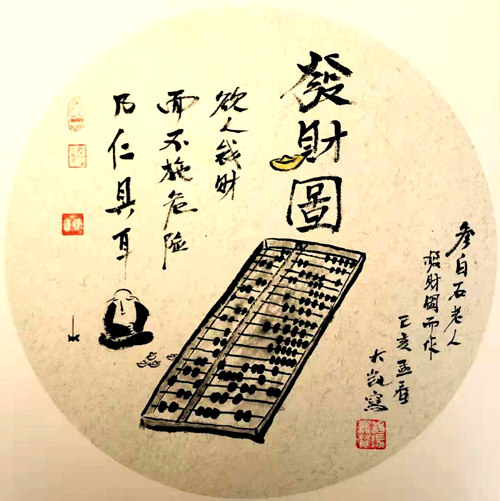 發財圖
欲人钱財
而不施危险
乃仁具耳
参白石老人
發財圖而作
己亥孟春
大凯寫